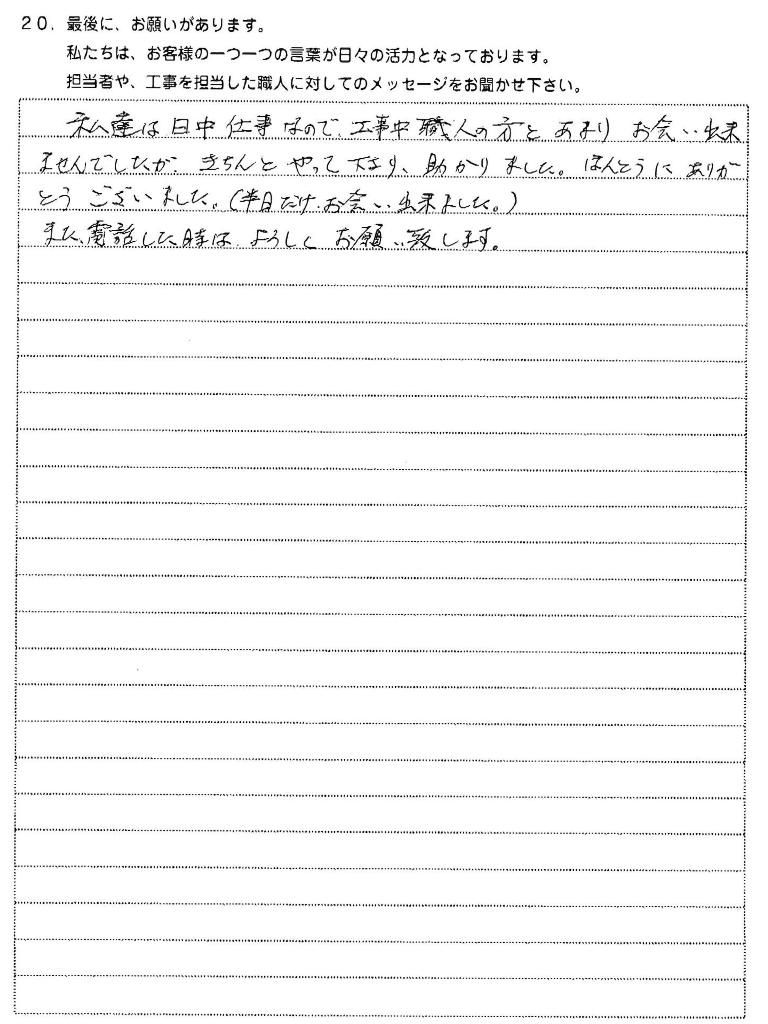 20．最後に、お願いがあります。
私たちは、お客様の一つ一つの言葉が日々の活力となっております。
担当者や、工事を担当した職人に対してのメッセージをお聞かせ下さい。
私達は日中仕事なので、工事中職人の方とあまりお会い出来
ませんでしたが、きちんとやって下さり、助かりました。ほんとうにありが
とうございました。(半日だけ、お会い出来ました。)
また、電話した時は、よろしくお願い致します。